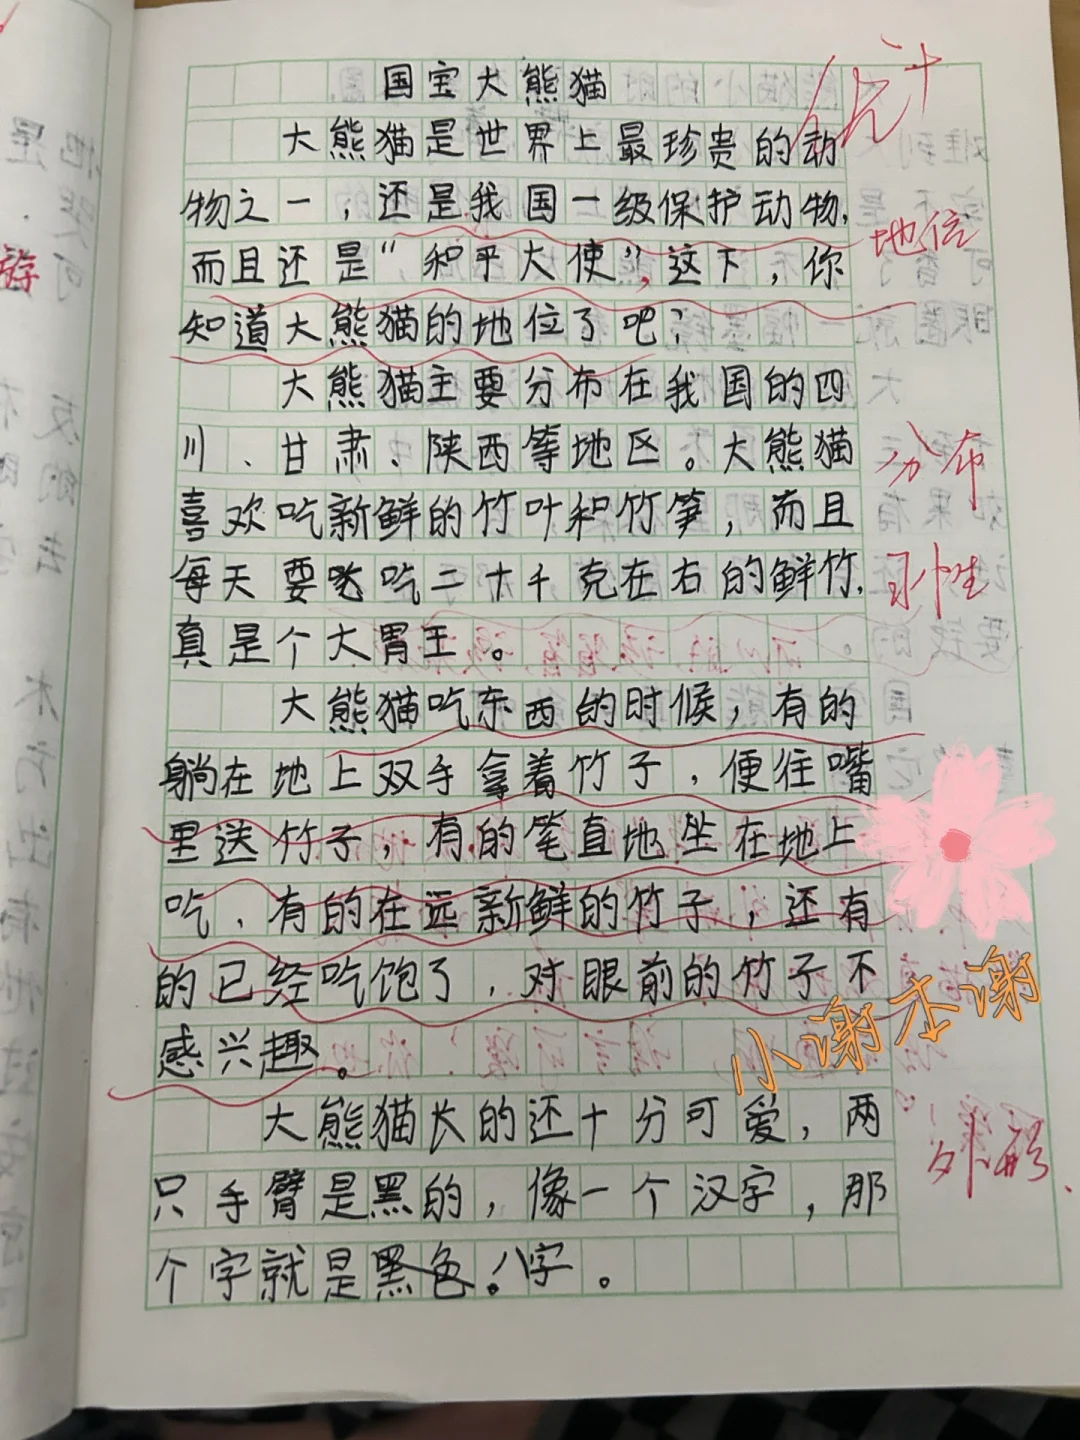 国宝大熊猫
优+
大熊猫是世界上最珍贵的动
物之一，还是我国一级保护动物，
地位
而且还是“和平大使”，这下，你
知道大熊猫的地位了吧？
大熊猫主要分布在我国的四
川、甘肃、陕西等地区。大熊猫
分布
喜欢吃新鲜的竹叶和竹笋，而且
每天要吃二十千克在右的鲜竹，
习性
真是个大胃王。
大熊猫吃东西的时候，有的
躺在地上双手拿着竹子，便往嘴
里送竹子，有的笔直地坐在地上
吃、有的在远新鲜的竹子，还有
的已经吃饱了，对眼前的竹子不
小谢不谢
感兴趣。
大熊猫长的还十分可爱，两
外形
只手臂是黑的，像一个汉字，那
个字就是八字。